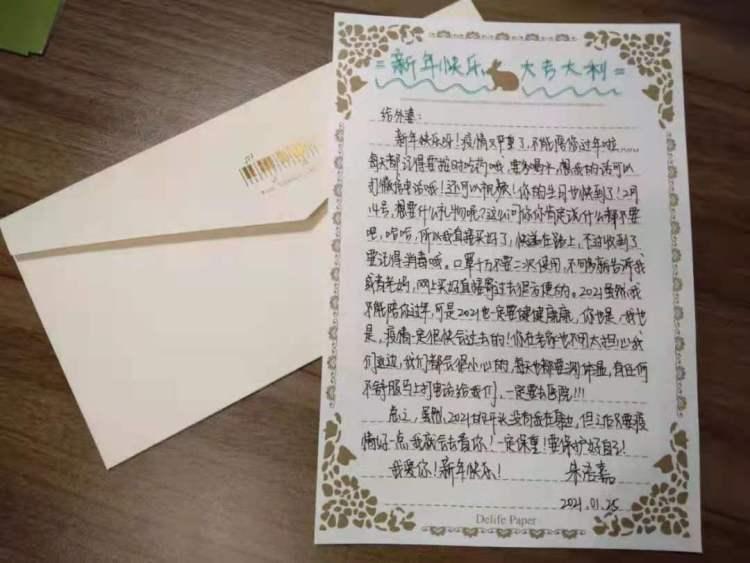 =新年快乐 大吉大利=
给外婆:
新年快乐呀!疫情又严重了,不能陪你过年啦......
每天都记得要按时吃药哦,要多喝水,想我的话可以
打微信电话哦!还可以视频!你的生日也快到了!2月
14号,想要什么礼物呢?这么问你你肯定说什么都不要
吧,哈哈,所以我直接买好了,快递在路上,不过收到了
要记得消毒哦。口罩千万不要二次使用,不够了就告诉我
或者老妈,网上买好直接寄过去很方便的。2021虽然我
不能陪你过年,可是2021也一定要健健康康,你也是,我也
是,疫情一定很快会过去的!你在老家也不用太担心我
们这边,我们都会很小心的,每天也都要测体温,有任何
不舒服马上打电话给我们,一定要去医院!!!
总之,虽然2021的开头没有我在身边,但
情好一点我就会去看你!一定保重!要保护好自己!
我爱你!新年快乐!
2021.01.25
Delife Paper